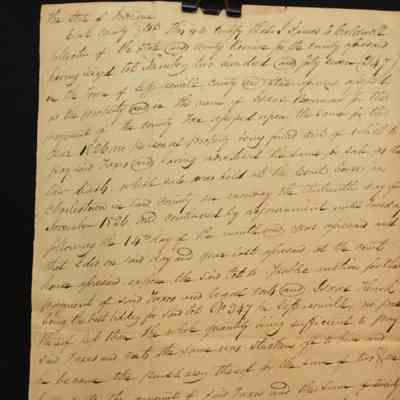 the State of Indiana
Clark county Sct This is to certify that I James Caldwell
Collector of the State and County Revenue for the county aforesaid
having levyed Lot Number two hundred and forty seven (247)
in the town of Jeffersonville County and State aforesaid assessed
as the property and in the name of Isaac Bowman for the
payment of the county Tax assessed upon the same for the
year 1826 no personal property being found out of which to
pay said Taxes and having advertised the same for sale as the
law directs, which sale was held at the Court house in
Charlestown in said County on monday the thirteenth day of
November 1826 and continued by adjournment until Tuesday
following the 14th day of the month and year aforesaid and
that I did on said day and year last aforesaid, at the court
house aforesaid expose the said Lot to Public auction for the
payment of said Taxes and legal costs and
being the best bidder for said Lot No 247 in Jeffersonville, no part
thereof less than the whole quantity being sufficient to pay
said Taxes and costs the same was stricken off to him and
he became the purchaser thereof for the sum of two
the amount of said Taxes and the sum of twenty